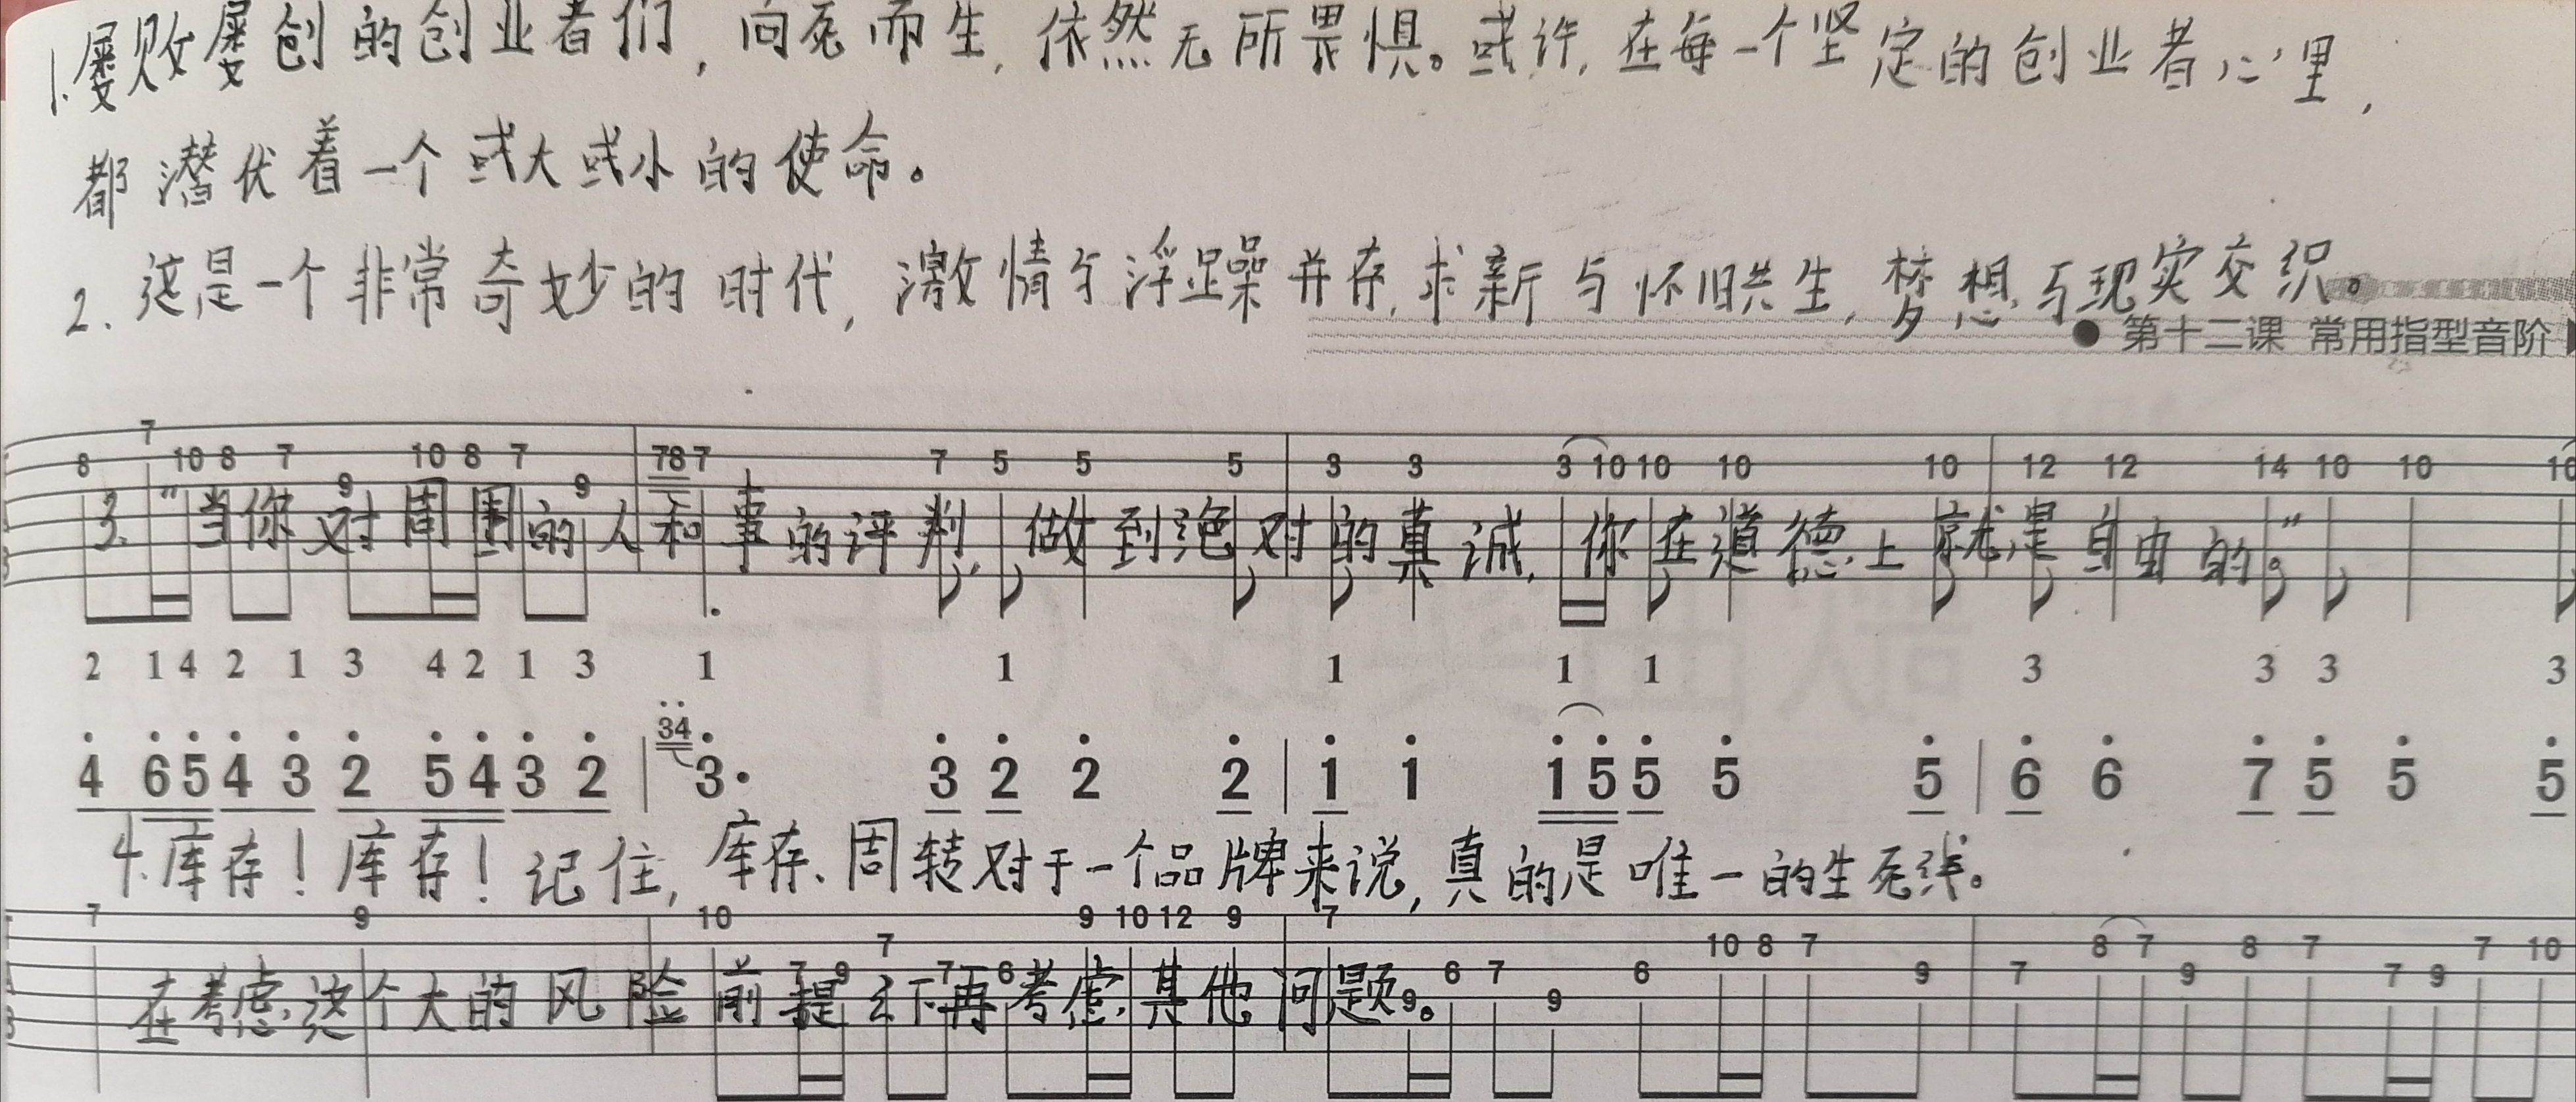 1.屡败屡创的创业者们,向死而生,依然无所畏惧。或许,在每一个坚定的创业者心里,
都潜伏着一个或大或小的使命。
2.这是一个非常奇妙的时代,激情与浮躁并存,求新与怀旧共生,梦想与现实交织。
●第十二课 常用指型音阶
7
8 10 8 7 10 8 7 787 7 5 5 5 3 3 3 10 10 10 10 12 12 14 10 10 10
9 9
3."当你对周围的人和事的评判,做到绝对的真诚,你在道德上就是自由的。"
2 1 4 2 1 3 4 2 1 3 1 1 1 1 1 3 3 3 3
34
4 6 5 4 3 2 5 4 3 2 3· 3 2 2 2 1 1 1 5 5 5 5 6 6 7 5 5 5
4.库存!库存!记住,库存、周转对于一个品牌来说,真的是唯一的生死线。
7 9 10 9 10 12 9 7
7 10 8 7 8 7 8 7 7 10
7 9 7 6 6 7 6 9 7 9 7 9
9 9
在考虑这个大的风险前提之下再考虑其他问题。